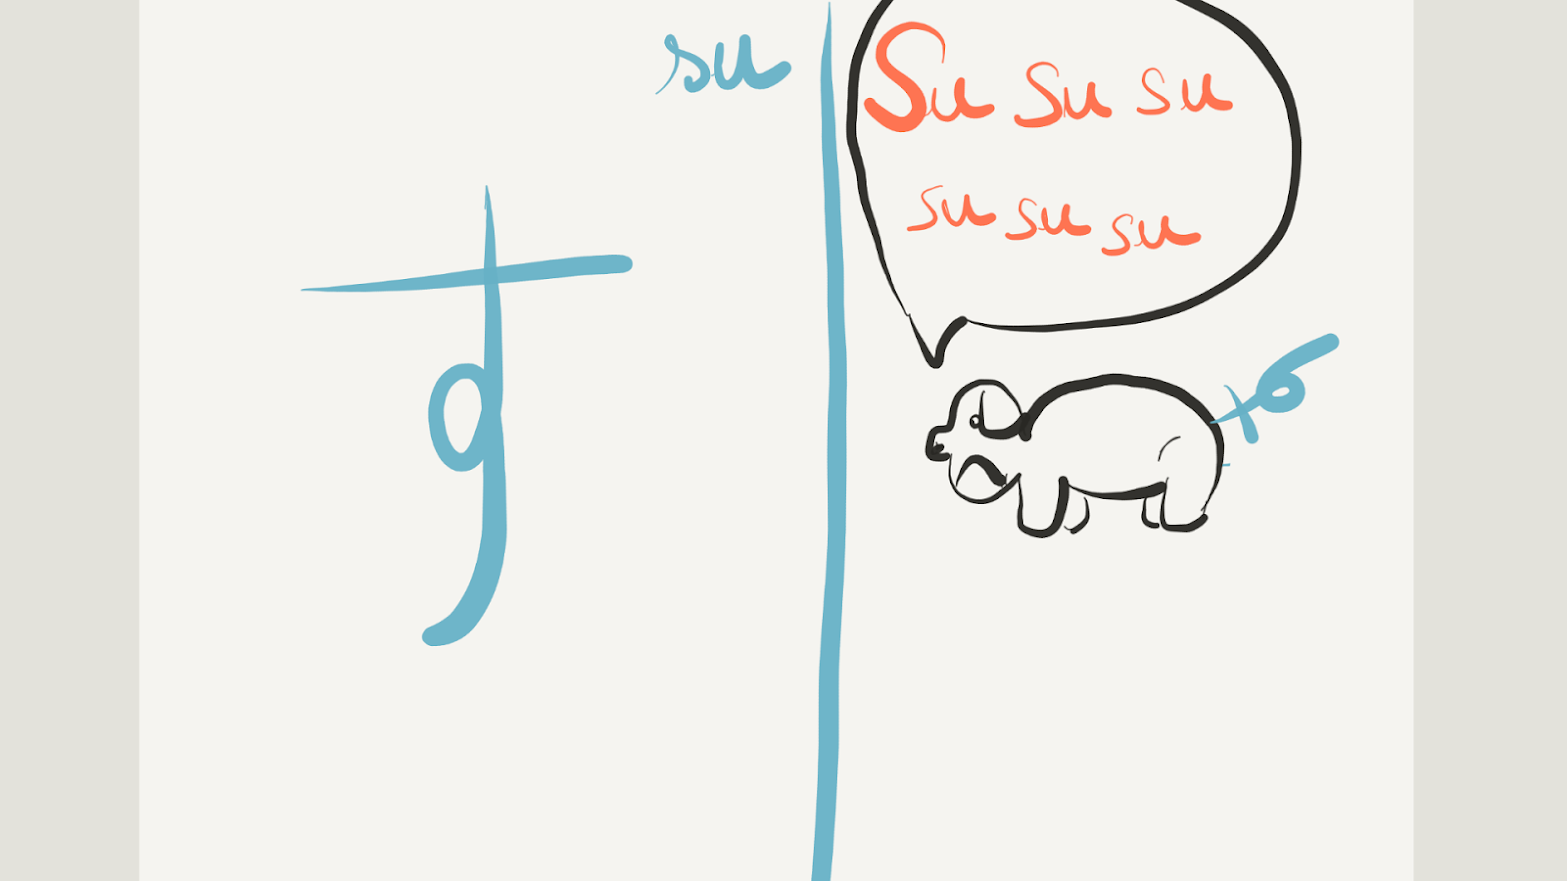 su
す
Su Su su
su su su